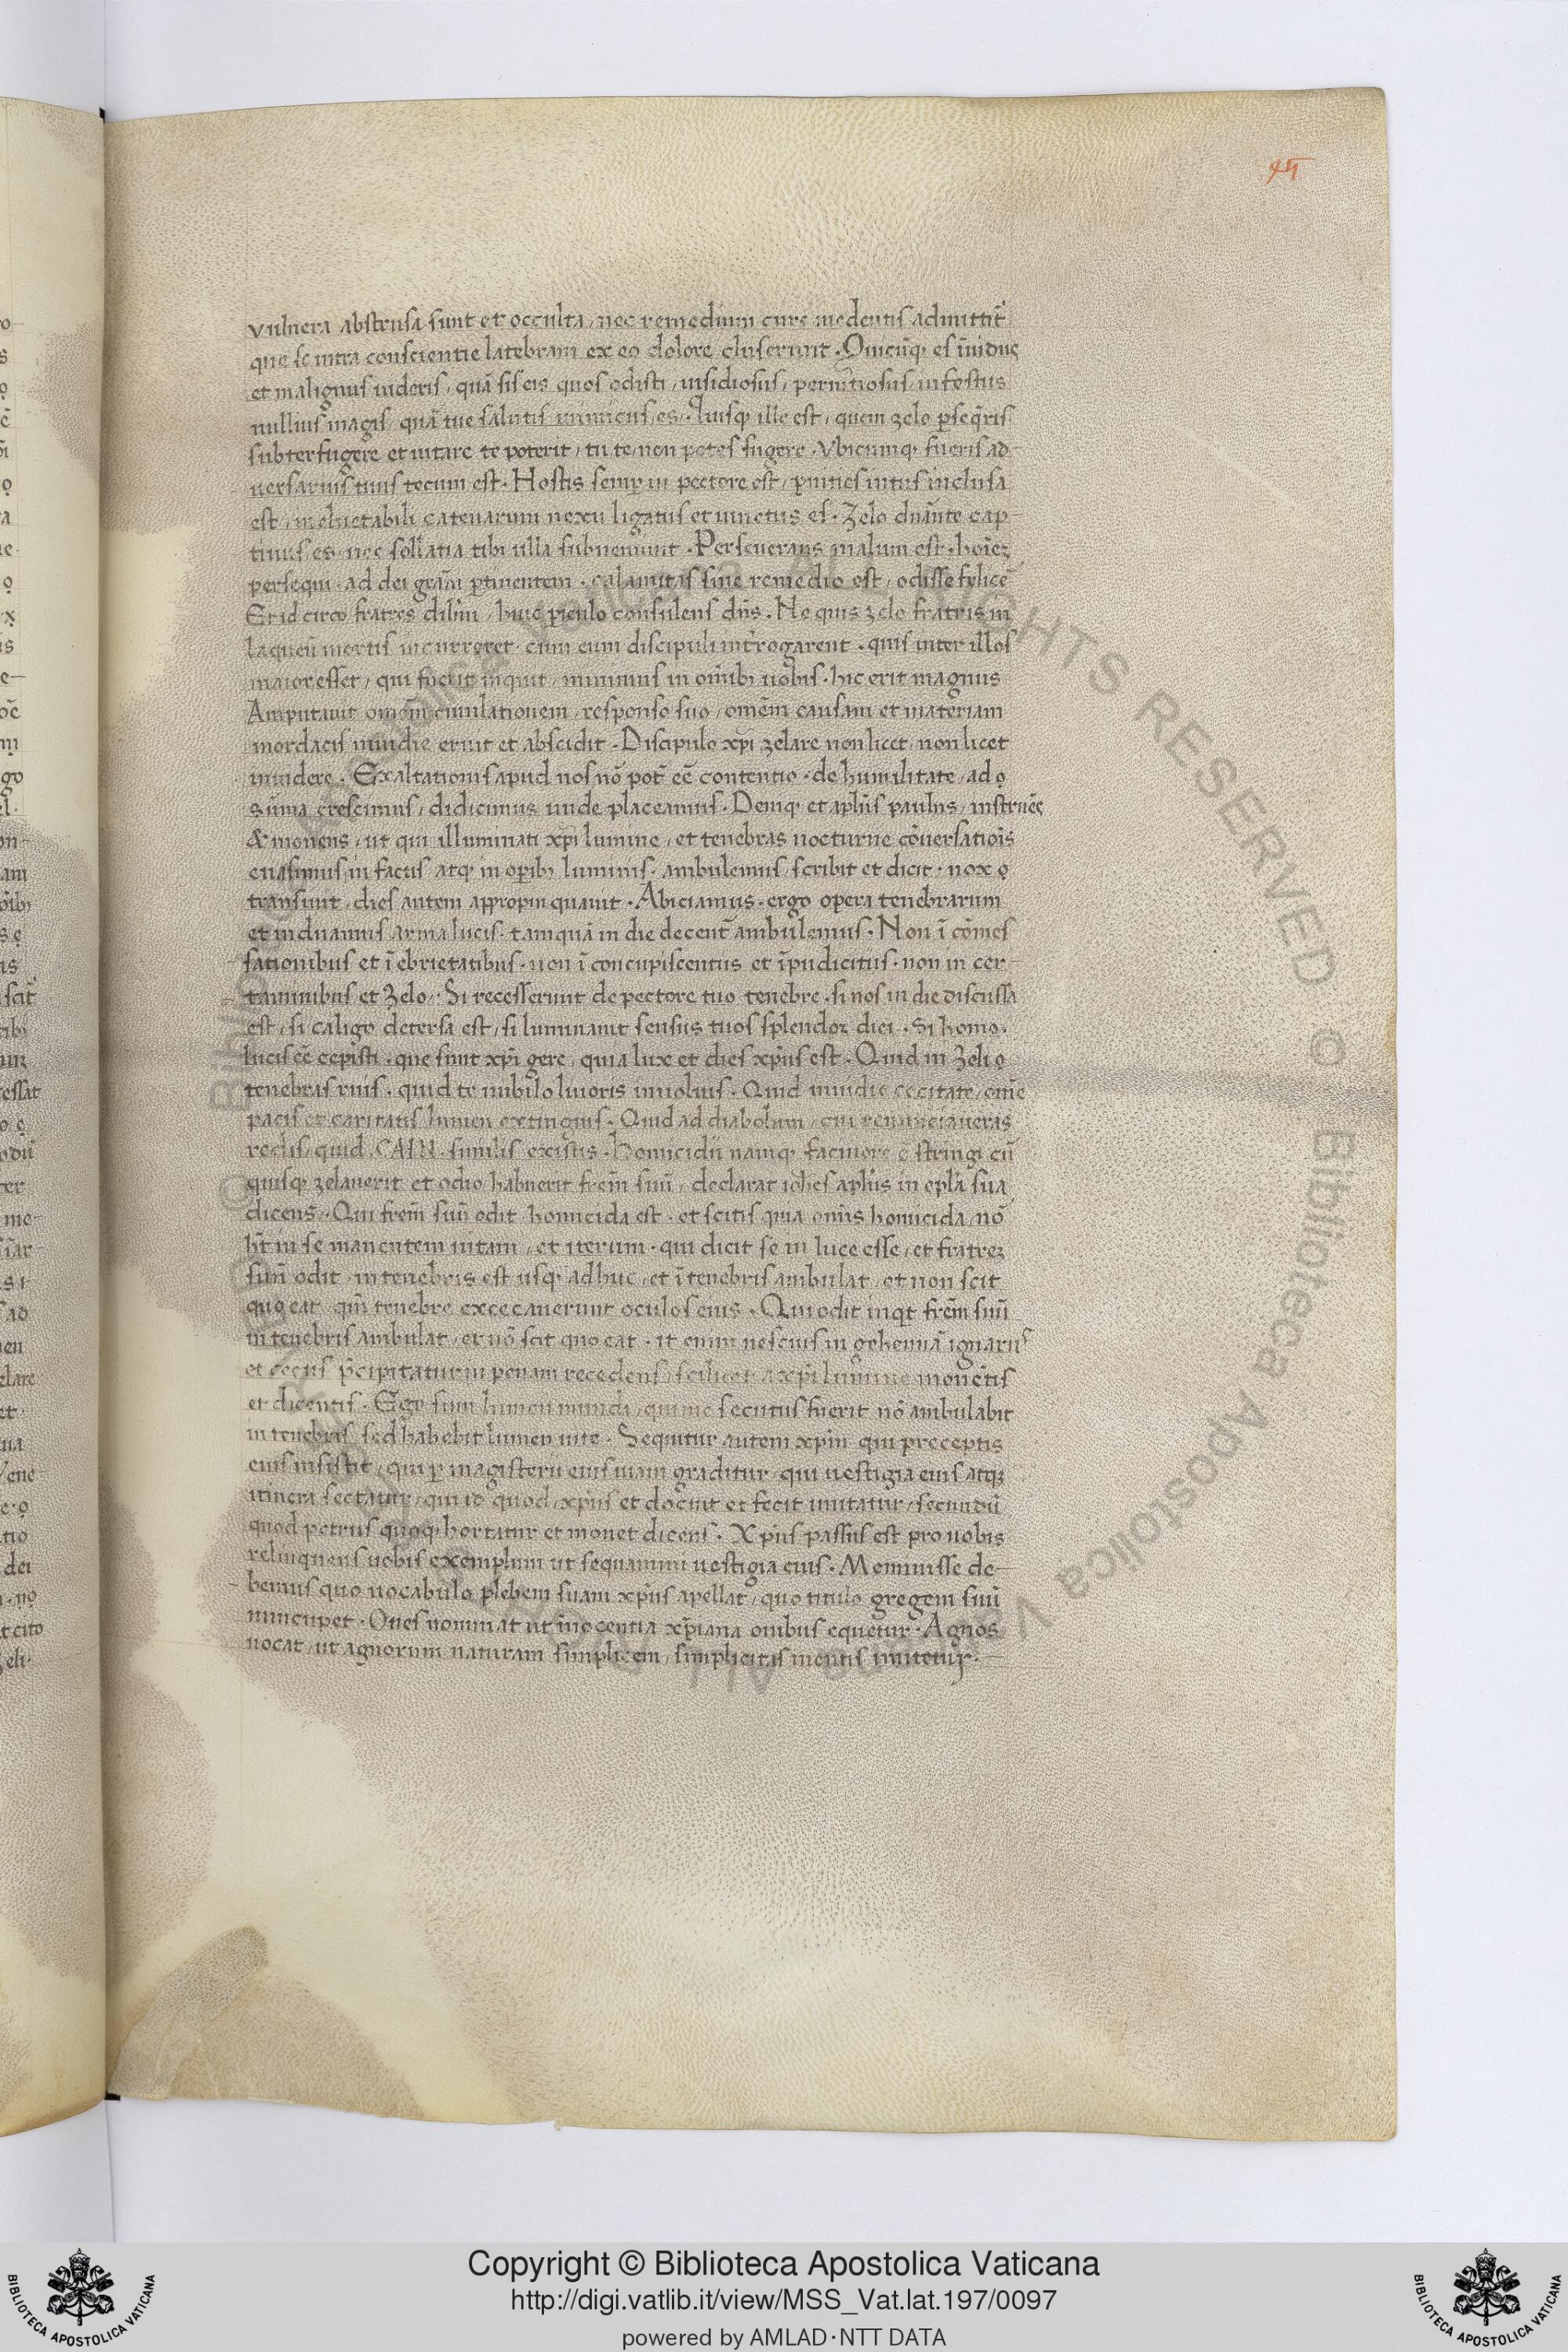 45
vulnera abstrusa sunt et occulta, nec remedium cure medentis admittũt
que se intra conscientie latebram ex eo dolore cluserunt . Quicũq; es ĩuidus
et malignus uideris, quã sis eis quos odisti, insidiosus, pernitiosus, infestus
nullius magis, quã tue salutis inimicus, es. Quisq; ille est, quem zelo ꝑseq̃ris
subterfugere et uitare te poterit, tu te non potes fugere . Vbicumq; fueris ad
uersarius tuus tecum est. Hostis semꝑ in pectore est, ꝑnities intus inclusa
est, ineluctabili catenarum nexu ligatus et uinctus es. Zelo dñante cap
tiuus es nec sollatia tibi ulla subueniunt . Perseuerans malum est, hoĩez
persequi ad dei gr̃am ꝑtinentem . calamitas sine remedio est, odisse felicẽ
Et id circo fratres dil̃mi, huic ꝑiculo consulens dñs . Ne quis zelo fratris in
laqueũ mortis incurreret cum eum discipuli interrogarent . quis inter illos
maior esset, qui fuerit inquit, minimus in om̃ibꝫ uobis . hic erit magnus
Amputauit om̃em emulationem, responso suo, om̃em causam et materiam
mordacis inuidie eruit et abscidit . Discipulo xp̃i zelare non licet, non licet
inuidere . Exaltationis apud nos nõ pot̃ eẽ contentio . de humilitate, ad
sũma crescimus, didicimus unde placeamus. Deniq; et apl̃us paulus, instruẽs
& monens, ut qui illuminati xp̃i lumine, et tenebras nocturne cõuersatiõis
euasimus in factis atq; in oꝑibꝫ luminis . ambulemus, scribit et dicit . nox
transiuit, dies autem appropinquauit . Abiciamus . ergo opera tenebrarum
et induamus arma lucis . tamquã in die decent̃ ambulemus . Non ĩ cõmes
sationibus et ĩ ebrietatibus . non ĩ concupiscentiis et ĩpudicitiis . non in cer
taminibus et Zelo. Si recesserunt de pectore tuo tenebre . si nox in die discussa
est, si caligo detersa est, si luminauit sensus tuos splendor diei . Si homo .
lucis eẽ cepisti . que sunt xp̃i gere, quia lux et dies xp̃us est . Quid in Zeli
tenebras ruis . quid te nubilo liuoris inuoluis . Quid inuidie cecitate, om̃e
pacis et caritatis lumen extinguis . Quid ad diabolum, cui renunciaueras
redis, quid CAIN . similis existis . Homicidii namq; facinore cõstringi cũ
quisq; zelauerit et odio habuerit fr̃em suũ, declarat ioh̃es apl̃us in epl̃a sua
dicens. Qui fr̃em suũ odit homicida est . et scitis quia om̃is homicida, nõ
h̃t in se manentem uitam, et iterum . qui dicit se in luce esse, et fratrez
suũ odit, in tenebris est usq; adhuc, et ĩ tenebris ambulat, et non scit
quo eat, qm̃ tenebre excecauerunt oculos eius . Qui odit inqt fr̃em suũ
in tenebris ambulat, et nõ scit quo eat . it enim nescius in gehennã ignarus
et cecus p̃cipitatur in penam recedens, scilicet a xp̃i lumine monẽtis
et dicentis . Ego sum lumen mundi, qui me secutus fuerit nõ ambulabit
in tenebris, sed habebit lumen uite . Sequitur autem xp̃m qui preceptis
eius insistit, qui ꝑ magisterii eius uiam graditur, qui uestigia eius atqꝫ
itinera sectatur, qui id quod xp̃us et docuit et fecit imitatur, secundũ
quod petrus quoq; hortatur et monet dicens . Xp̃us passus est pro nobis
relinquens uobis exemplum ut sequamini uestigia eius . Meminisse de-
bemus quo uocabulo plebem suam xp̃us apellat, quo titulo gregem suũ
nuncupet . Oues nominat ut ĩnocentia xp̃iana ouibus equetur . Agnos
uocat, ut agnorum naturam simplicem, simplicitas mentis imitetur .
Copyright © Biblioteca Apostolica Vaticana
http://digi.vatlib.it/view/MSS_Vat.lat.197/0097
powered by AMLAD·NTT DATA
BIBLIOTECA APOSTOLICA VATICANA
BIBLIOTECA APOSTOLICA VATICANA